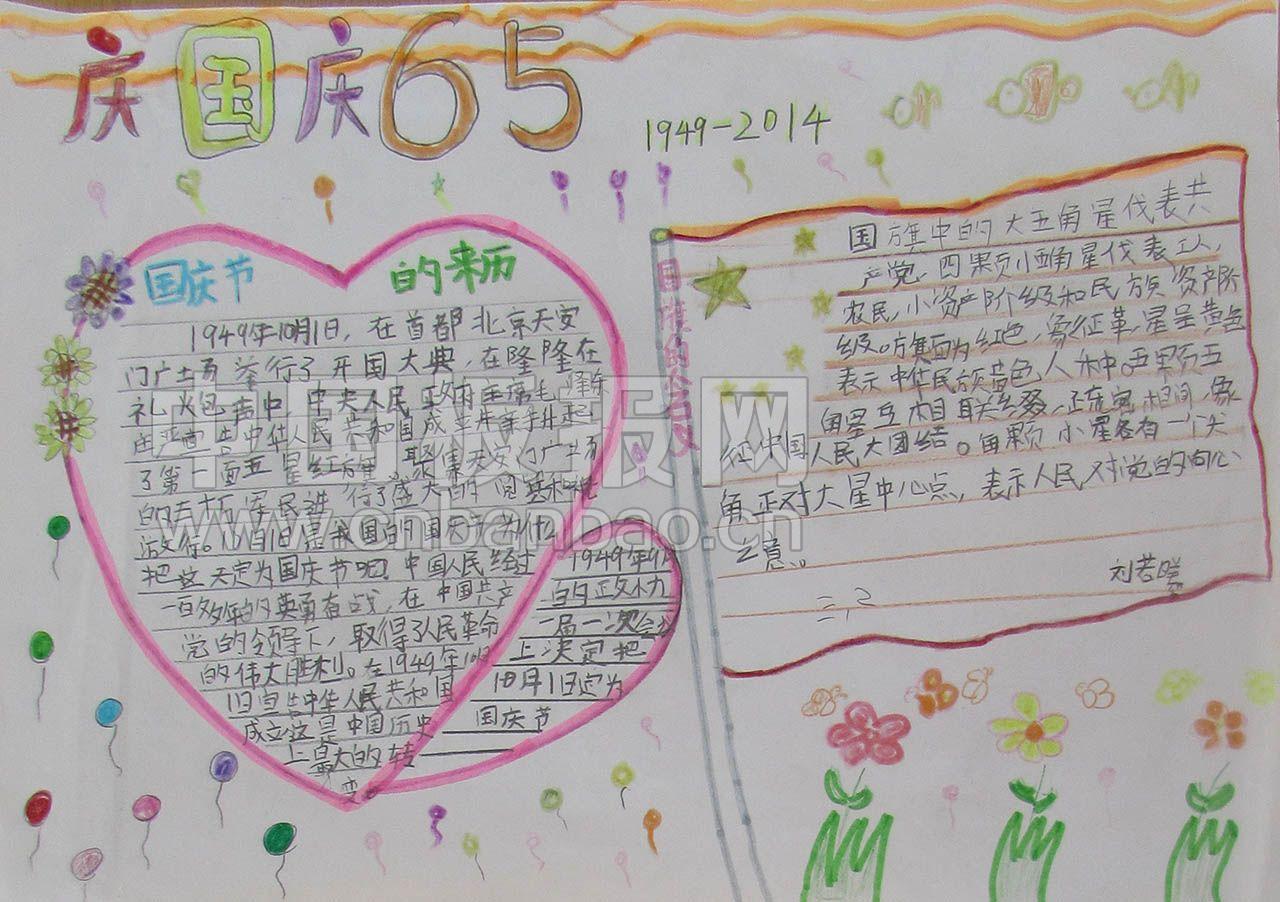 庆国庆65
1949-2014
国庆节 的来历
1949年10月1日，在首都北京天安
门广场举行了开国大典，在隆隆在
礼火包声中 中央人民政府主席毛泽东
宣告中华人民共和国成立并亲手升起
了第一面五星红旗，聚集天安门广场
行。10月1日是我国的国庆节为什么
把这一天定为国庆节呢？中国人民经过
一百多年的英勇奋战，在中国共产
党的领导下，取得了人民革命
的伟大胜利。在1949年10月
1日宣告中华人民共和国
成立这是中国历史
上最大的转
变
1949年9月
的政
一届一次会议
上决定把
10月1日定为
国庆节
国旗的含义
国旗中的大五角星代表共
产党、四颗小五角星代表工人，
农民，小资产阶级和民族资产阶
级。旗面为红色，象征革，星呈黄色
表示中华民族黄色人种。五颗五
角星互相联缀，疏密相间，象
征中国人民大团结。每颗小星各有一个尖
角正对大星中心点，表示人民对党的向心
之意。
刘若曦
三，2
www.onbanbao.cn